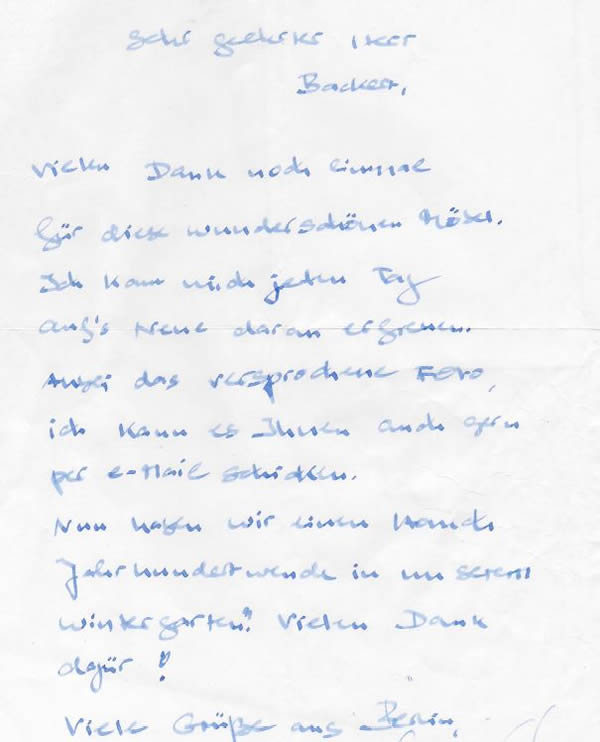 Sehr geehrter Herr
Backert,
Vielen Dank noch einmal
für diese wunderschönen Möbel.
Ich kann mich jeden Tag
auf's Neue daran erfreuen.
Anbei das versprochene Foto,
ich kann es Ihnen auch gern
per e-Mail schicken.
Nun haben wir einen Hauch
Jahrhundertwende in unserem
Wintergarten! Vielen Dank
dafür!
Viele Grüße aus Berlin,